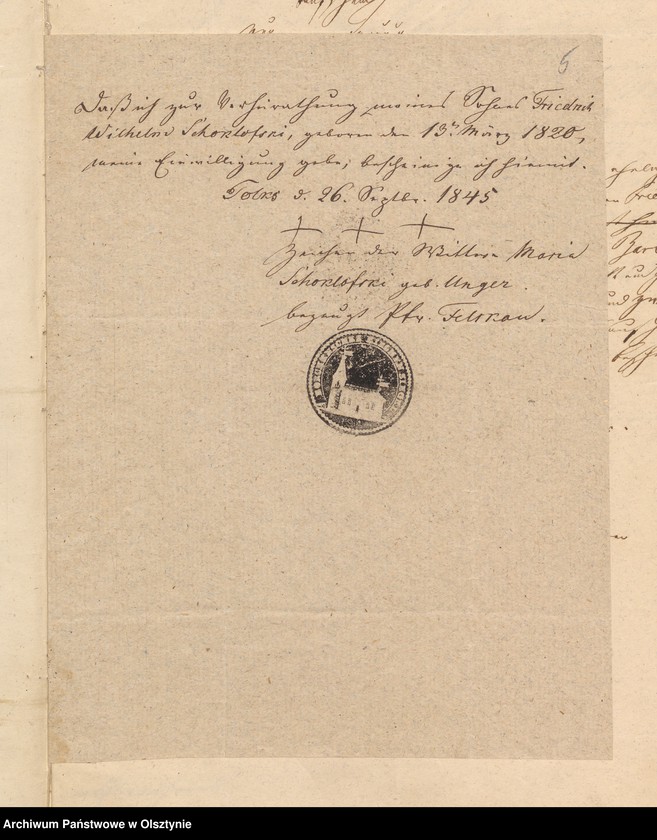 5
Daß ich zur Verheirathung meines Sohnes Friedrich
Wilhelm Schoklofski, geboren den 13t. März 1820,
meine Einwilligung gebe, bescheinige ich hiermit.
Tolks d. 26. Septbr. 1845
+ + +
Zeichen der Wittwe Maria
Schoklofski geb. Unger.
bezeugt Pfr. Felskau.
Archiwum Państwowe w Olsztynie